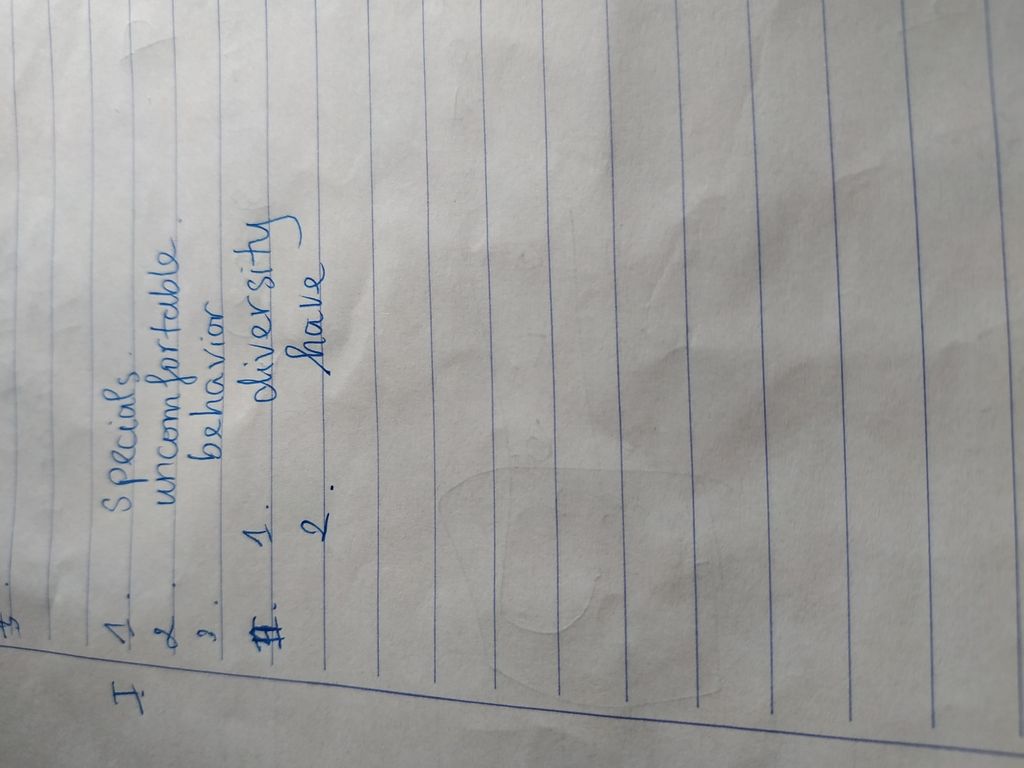 I 1. Specials.
2. uncomfortable.
3. behavior
II. 1. diversity
2. have